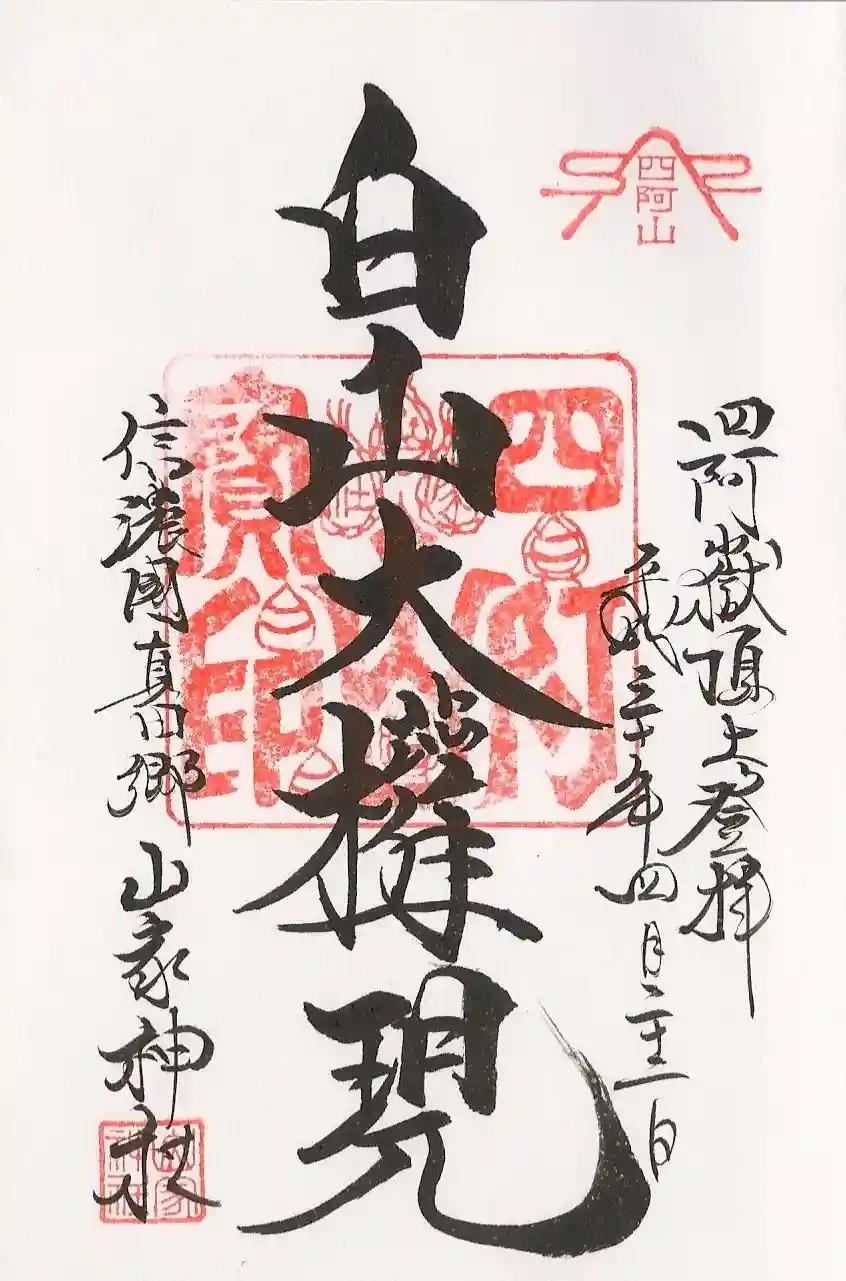 四阿山
四阿嶽頂上登拝
平成三十年四月二十二日
白山大權現
四阿山寶印
信濃國真田郷 山家神社
山家神社